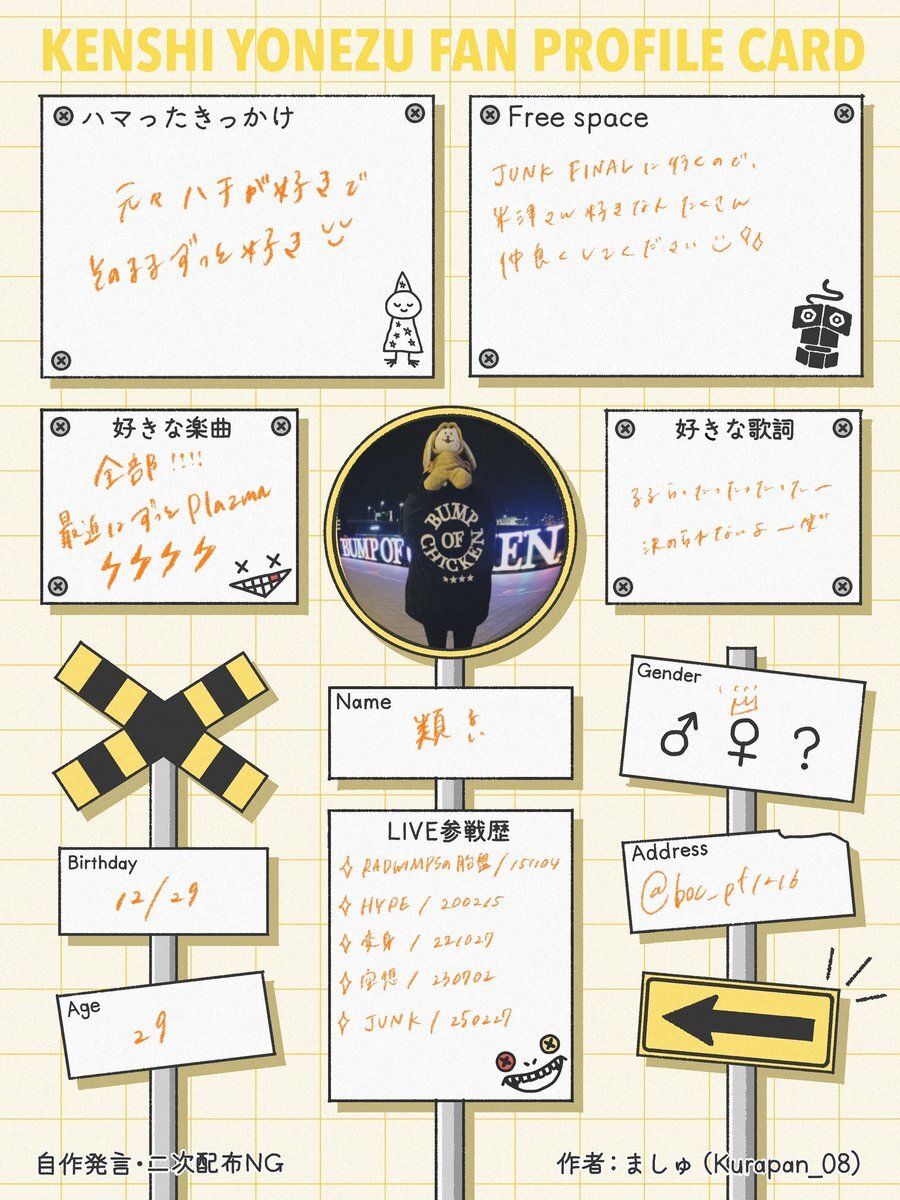 KENSHI YONEZU FAN PROFILE CARD
ハマったきっかけ
元々ハチが好きで
そのままずっと好き
Free space
JUNK FINALに行くので、
米津さん好きな人たくさん
仲良くしてください
好きな楽曲
全部!!!!
最近はずっとPlazma
BUMP
OF
CHICKEN
BUMP OF CHICKEN
好きな歌詞
決められないよー
Name
類
Gender
♂ ♀ ?
LIVE参戦歴
RADWIMPSの胎盤/151104
HYPE / 200215
変身 / 221027
空想 / 230702
JUNK / 250227
Birthday
12/29
Address
@boc_pf1216
Age
29
自作発言・二次配布NG
作者:ましゅ(Kurapan_08)